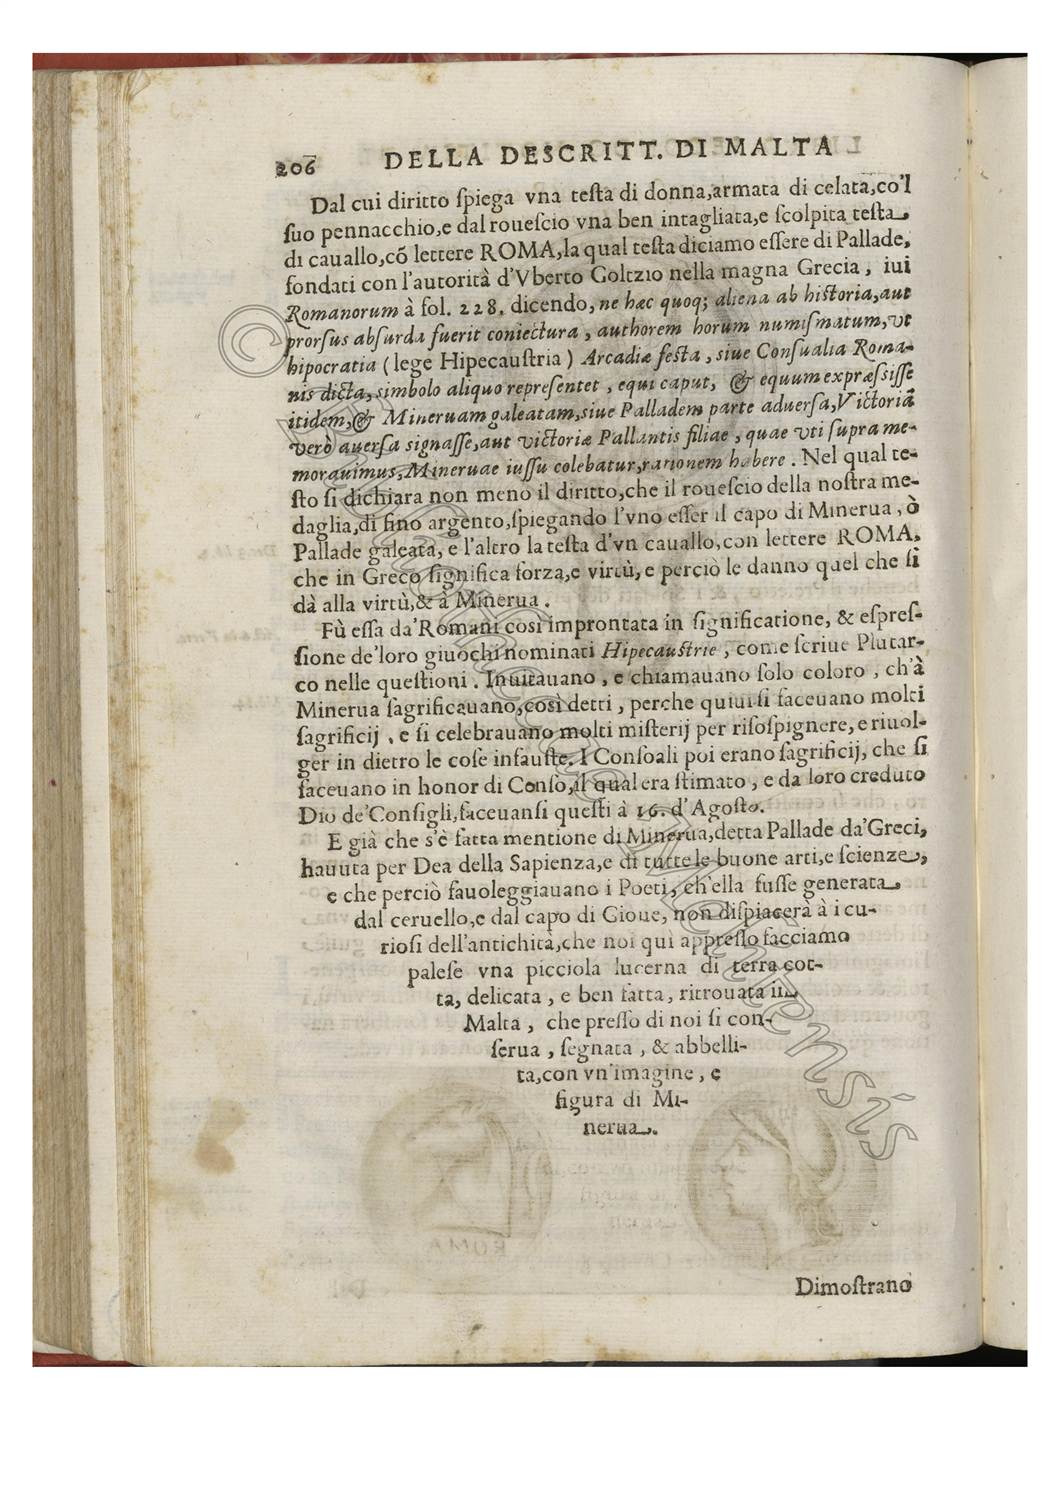 206 DELLA DESCRITT. DI MALTA
Dal cui diritto ſpiega vna teſta di donna,armata di celata,co'l
ſuo pennacchio,e dal roueſcio vna ben intagliata,e ſcolpita teſta
di cauallo,cõ lettere ROMA,la qual teſta diciamo eſſere di Pallade,
fondati con l'autorità d'Vberto Goltzio nella magna Grecia, iui
Romanorum à fol. 228. dicendo, ne hæc quoq; aliena ab hiſtoria,aut
prorſus abſurda fuerit coniectura, authorem horum numiſmatum,vt
hipocratia (lege Hipecauſtria) Arcadiæ feſta, ſiue Conſualia Roma-
nis dicta, simbolo aliquo repreſentet, equi caput, & equum expræſſiſſe
itidem,& Mineruam galeatam,ſiue Palladem parte aduerſa,Victoriã
verò auerſa signaſſe,aut victoriæ Pallantis filiae, quae vti ſupra me-
morauimus,Mineruae iuſſu colebatur,rationem habere. Nel qual te-
ſto ſi dichiara non meno il diritto,che il roueſcio della noſtra me-
daglia,di fino argento,ſpiegando l'vno eſſer il capo di Minerua, ò
Pallade galeata, e l'altro la teſta d'vn cauallo,con lettere ROMA,
che in Greco ſignifica forza,e virtù, e perciò le danno quel che ſi
dà alla virtù,& à Minerua.
Fù eſſa da'Romani così improntata in ſignificatione, & eſpreſ-
ſione de'loro giuochi nominati Hipecauſtrie, come ſcriue Plutar-
co nelle queſtioni. Inuitauano, e chiamauano ſolo coloro, ch'à
Minerua ſagrificauano,così detti, perche quiui ſi faceuano molti
ſagrificij, e ſi celebrauano molti miſterij per riſoſpignere, e riuol-
ger in dietro le coſe infauſte. I Conſoali poi erano ſagrificij, che ſi
faceuano in honor di Conſo,il qual era ſtimato, e da loro creduto
Dio de'Conſigli,faceuanſi queſti à 16. d'Agoſto.
E già che s'è fatta mentione di Minerua,detta Pallade da'Greci,
hauuta per Dea della Sapienza,e di tutte le buone arti,e ſcienze,
e che perciò fauoleggiauano i Poeti, ch'ella fuſſe generata
dal ceruello,e dal capo di Gioue, non diſpiacerà à i cu-
rioſi dell'antichità,che noi quì appreſſo facciamo
paleſe vna picciola lucerna di terra cot-
ta, delicata, e ben fatta, ritrouata in
Malta, che preſſo di noi ſi con-
ſerua, ſegnata, & abbelli-
ta,con vn'imagine, e
figura di Mi-
nerua.
Dimoſtrano
©